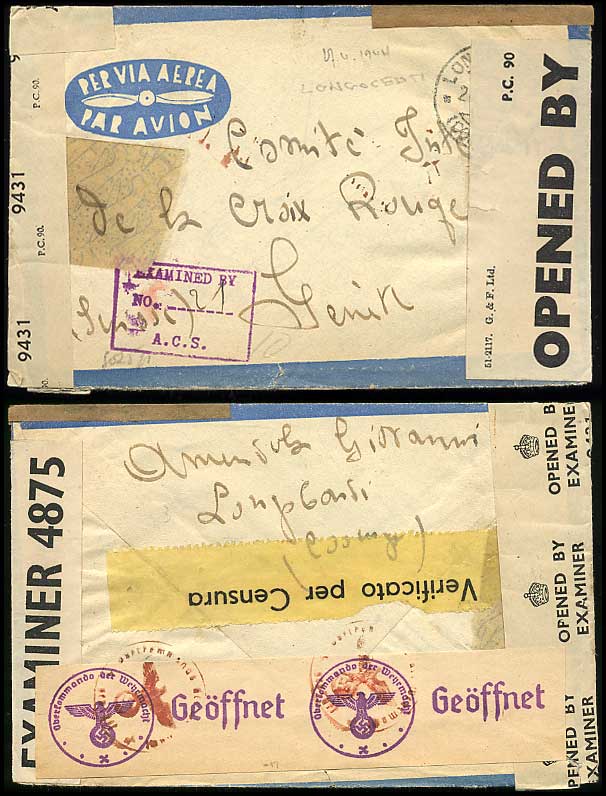 PER VIA AEREA
PAR AVION
LON
2
Comité Int
de la Croix Rouge
Genève
(Suisse)
EXAMINED BY
NO. 21
A.C.S.
9431
P.C. 90.
9431
P.C. 90.
P.C. 90
OPENED BY
51-2117. G. & F. Ltd.
Giovanni
Longobardi
(Cosenza)
Verificato per Censura
EXAMINER 4875
Oberkommando der Wehrmacht
Geöffnet
Oberkommando der Wehrmacht
Geöffnet
OPENED B
EXAMINE
OPENED BY
EXAMINER
OPENED BY
EXAMINER